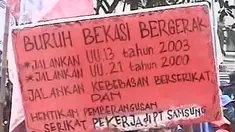 BURUH BEKASI BERGERAK
*JALANKAN UU.13 tahun 2003
*JALANKAN UU.21 tahun 2000
JALANKAN KEBEBASAN BERSERIKAT,
DAN
HENTIKAN PEMBERANGUSAN
SERIKAT PEKERJA di PT SAMSUNG